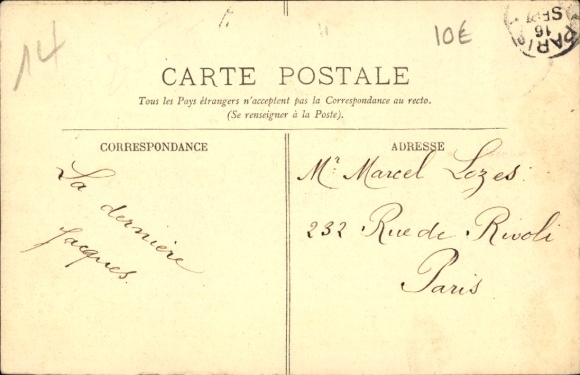 14
10€
PARIS
16
SEPT
CARTE POSTALE
Tous les Pays étrangers n'acceptent pas la Correspondance au recto.
(Se renseigner à la Poste).
CORRESPONDANCE
La dernière
Jacques.
ADRESSE
Mr. Marcel Lozes.
232 Rue de Rivoli
Paris